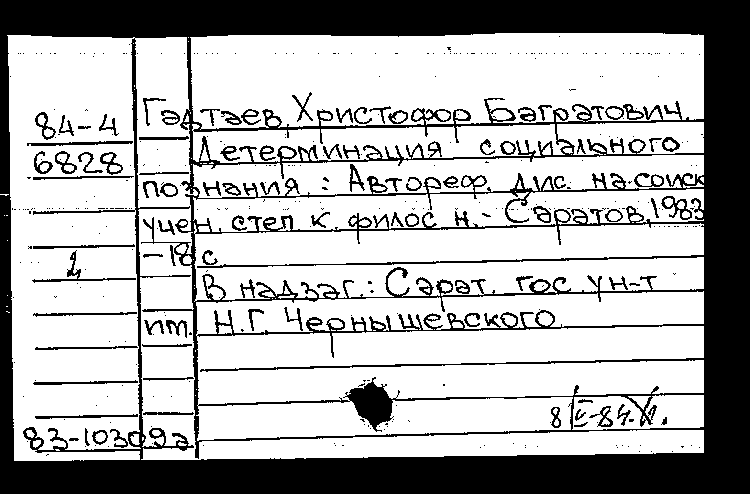 84-4 Гадтаев, Христофор Багратович.
6828 Детерминация социального
познания : Автореф. дис. на соиск
учен. степ к. филос н. - Саратов, 1983
2 - 18 с
В надзаг.: Сарат. гос. ун-т
им. Н.Г. Чернышевского
83-10309а